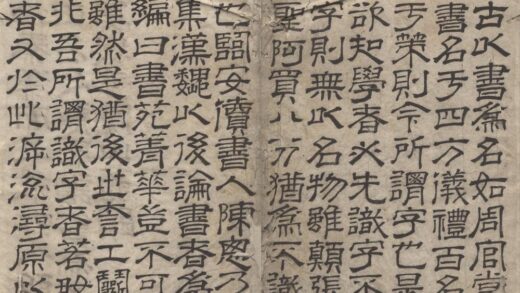 古以書為名如周官掌
書名于四方儀禮百名
于策則今所謂字也是
欲知學者必先識字不
字則無以名物雖顛張
聖阿買八分猶為不識
也臨安儥書人陳思乃
集漢魏以後論書者為
編曰書苑菁華益不可
雖然是猶後世夸工鬭
非吾所謂識字者若好
者又於此泝流尋原以